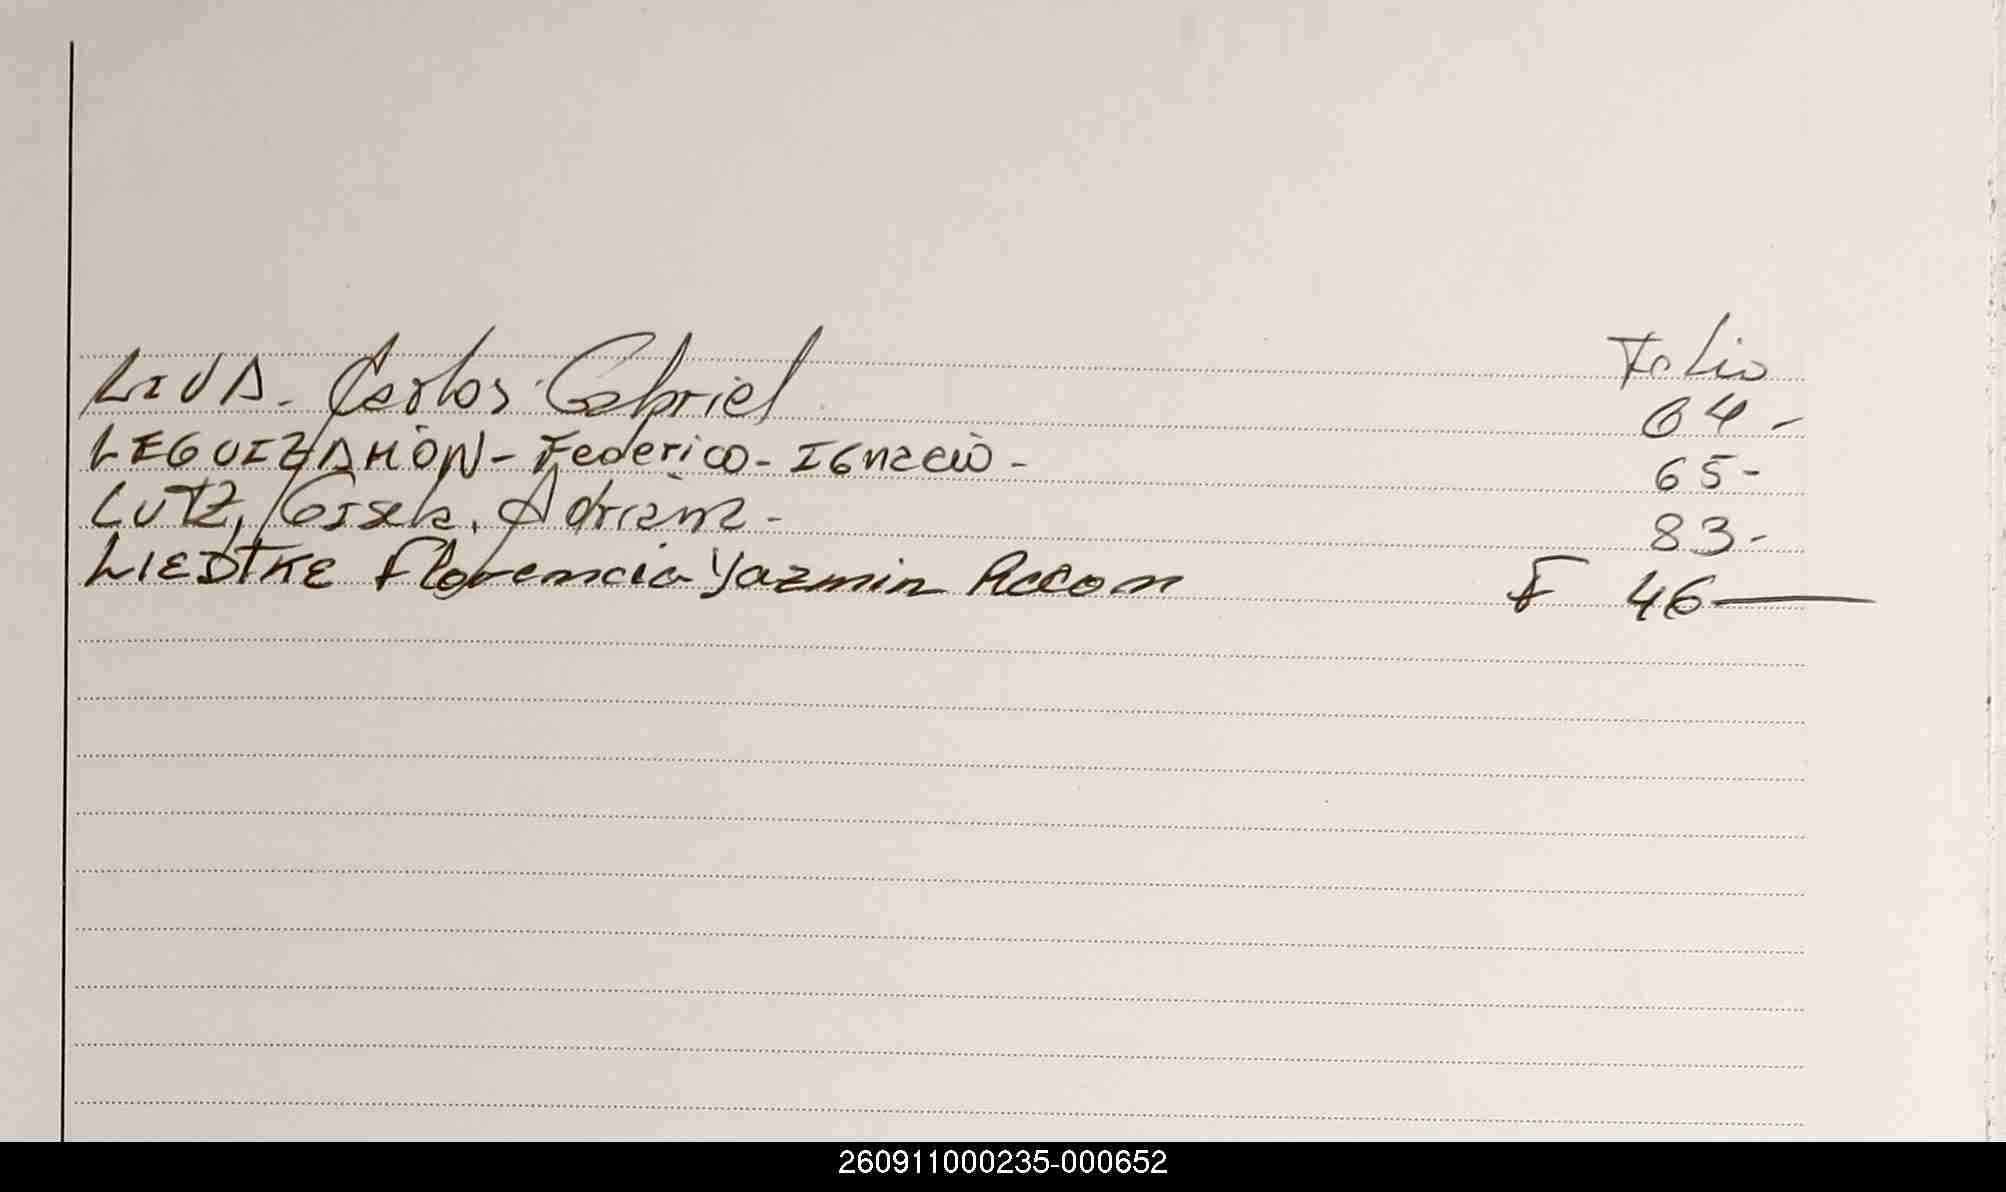 Folio
LIVA. Carlos. Gabriel 64-
LEGUIZAMÒN - Federico - IGnacio - 65-
LUTZ, Gisela, Adriana - 83-
LIEDTKE Florencia Yazmin F 46
260911000235-000652